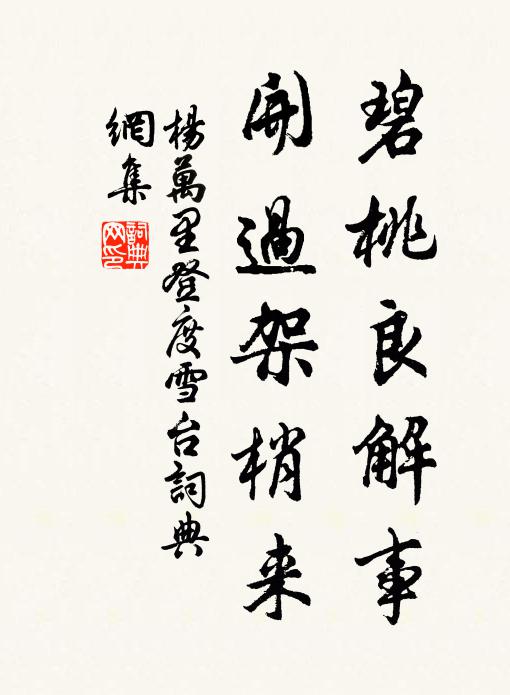 碧桃良解事
開過架梢来
楊萬里登度雪台詞典
網集
詞典
网印